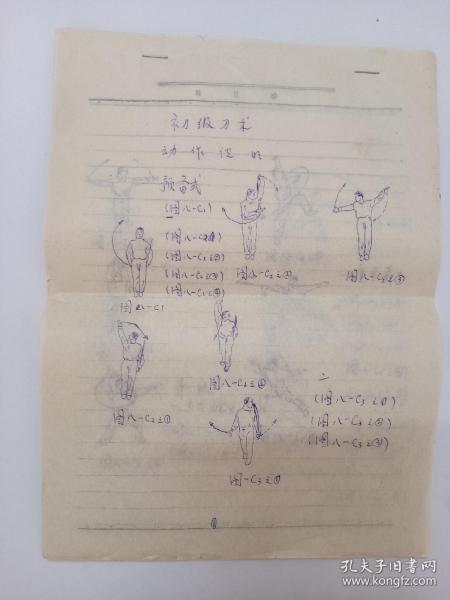 初级刀术
动作说明
预备式
(图八-C1)
(图八-C2之①)
(图八-C2之②)
(图八-C2之③)
(图八-C2之④)
图八-C1
图八-C2之②
图八-C2之③
图八-C2之①
图八-C2之④
二
(图八-C3之①)
(图八-C3之②)
(图八-C3之③)
图-C3之①
孔夫子旧书网
www.kongfz.com